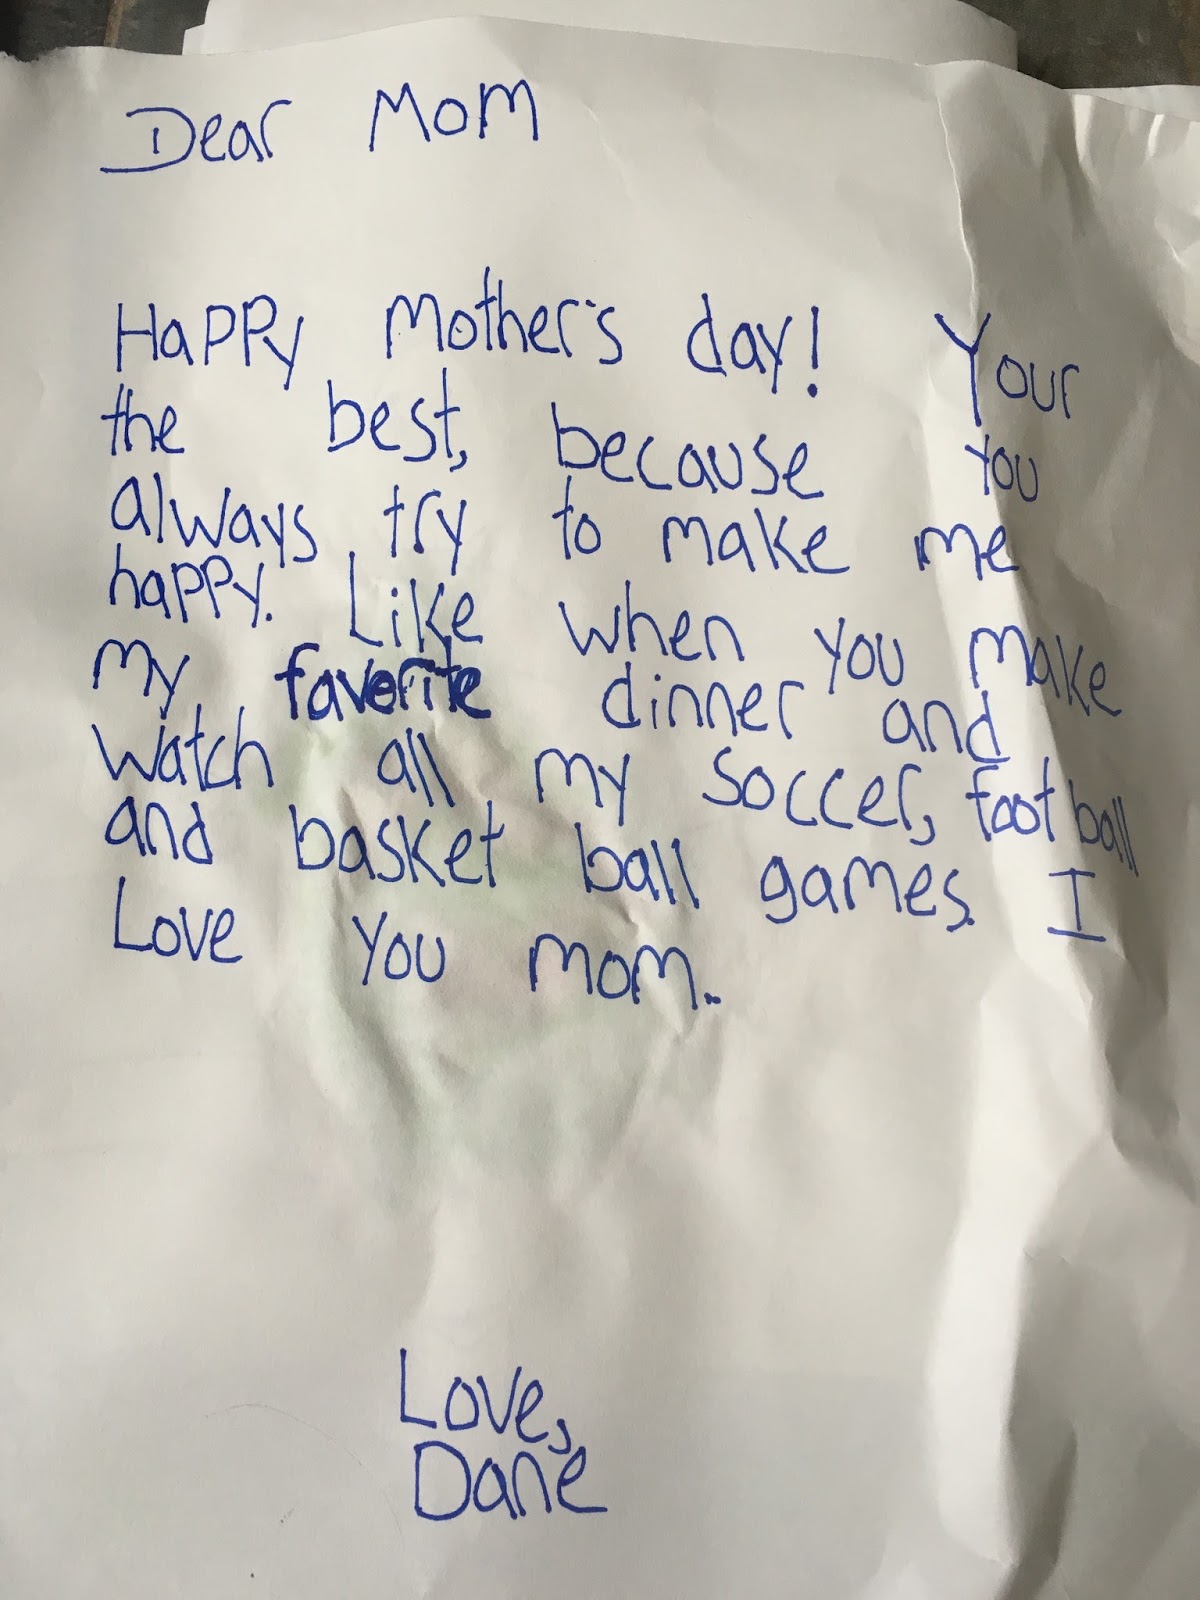 Dear Mom
Happy Mother's day! Your
the best, because you
always try to make me
happy. Like when you make
my favorite dinner and
watch all my soccer, foot ball
and basket ball games. I
Love you mom.
Love,
Dane